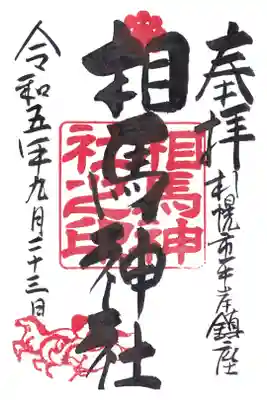 奉拝
札幌市平岸鎮座
相馬神社
相馬神
社之印
令和五年九月二十三日